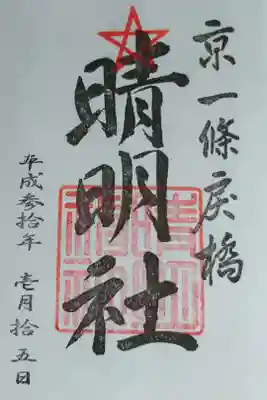 京一條戻橋
晴明社
平成參拾年 壱月拾五日